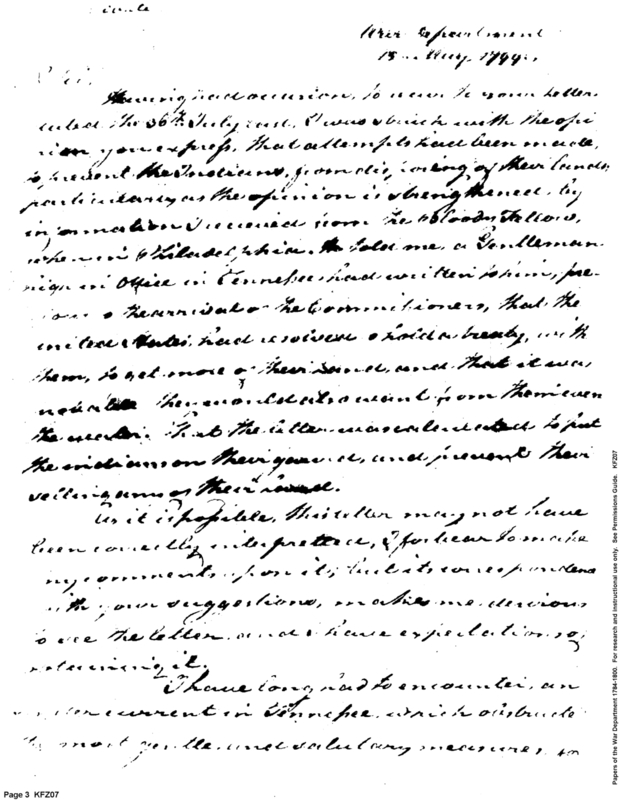 War Department
15 Aug. 1799.
Sir,
Having had occasion, to recur to your letter
dated the 30th July , I was struck with the opi
nion you express, that attempts had been made,
to prevent the Indians, from disposing of their lands,
particularly as the opinion is strengthened by
information I received from the Bloody Fellow,
when in Philadelphia. He told me, a Gentleman
high in Office in Tennessee had written to him, pre-
vious to the arrival of the Commissioners, that the
united States, had resolved to hold a treaty, with
them, to get more of their Land, and that it was
they would also want from them even
the water. That the letter was calculated to put
the indians on their guard, and prevent their
selling any of their land.
As it is possible, this letter may not have
been correctly interpretted, I forbear to make
my comments upon it; but its correspondence
with your suggestions, makes me desirous
to see the letter, and I have expectations of
obtaining it.
I have long had to encounter, an
under current in Tennessee, which obstructs
the most gentle, and salutary measures to
Page 3 KFZ07
Papers of the War Department 1784-1800. For research and instructional use only. See Permissions Guide. KFZ07